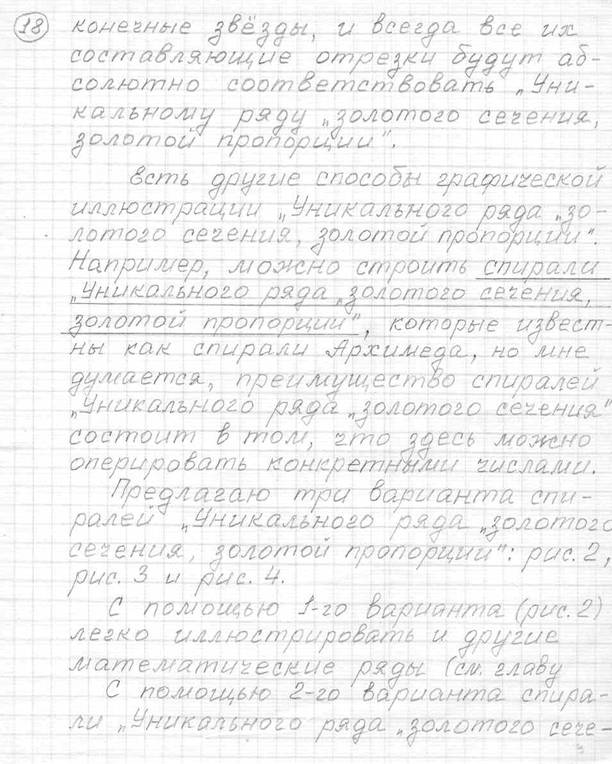 18 конечные звёзды, и всегда все их
составляющие отрезки будут аб-
солютно соответствовать „Уни-
кальному ряду „золотого сечения,
золотой пропорции".
Есть другие способы графической
иллюстрации „Уникального ряда „зо-
лотого сечения, золотой пропорции".
Например, можно строить спирали
„Уникального ряда „золотого сечения,
золотой пропорции", которые извест-
ны как спирали Архимеда, но мне
думается, преимущество спиралей
„Уникального ряда „золотого сечения"
состоит в том, что здесь можно
оперировать конкретными числами.
Предлагаю три варианта спи-
ралей „Уникального ряда „золотого
сечения, золотой пропорции": рис. 2,
рис. 3 и рис. 4.
С помощью 1-го варианта (рис. 2)
легко иллюстрировать и другие
математические ряды (см. главу
С помощью 2-го варианта спира-
ли „Уникального ряда „золотого сече-